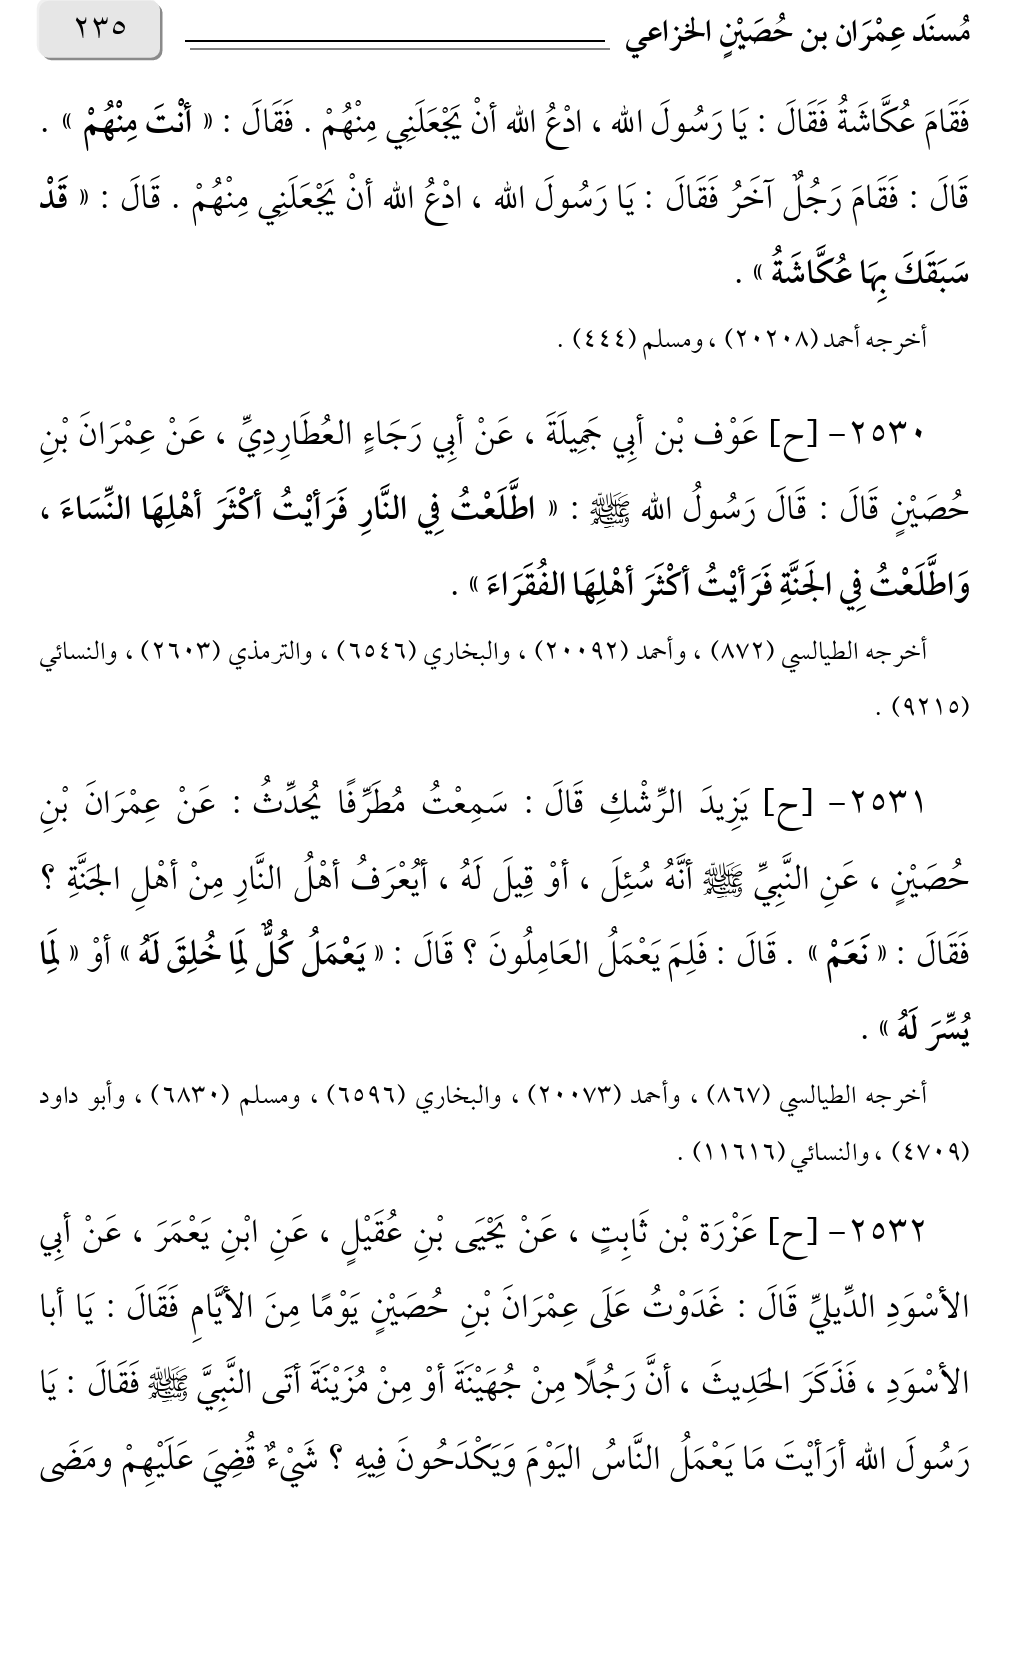 مُسنَد عِمْرَان بن حُصَيْنٍ الخزاعي ٢٣٥
فَقَامَ عُكَّاشَةُ فَقَالَ : يَا رَسُولَ الله ، ادْعُ الله أنْ يَجْعَلَنِي مِنْهُمْ . فَقَالَ : « أنْتَ مِنْهُمْ » .
قَالَ : فَقَامَ رَجُلٌ آخَرُ فَقَالَ : يَا رَسُولَ الله ، ادْعُ الله أنْ يَجْعَلَنِي مِنْهُمْ . قَالَ : « قَدْ
سَبَقَكَ بِهَا عُكَّاشَةُ » .
أخرجه أحمد (٢٠٢٠٨) ، ومسلم (٤٤٤) .
٢٥٣٠- [ح] عَوْف بْن أبِي جَمِيلَةَ ، عَنْ أبِي رَجَاءٍ العُطَارِدِيِّ ، عَنْ عِمْرَانَ بْنِ
حُصَيْنٍ قَالَ : قَالَ رَسُولُ الله ﷺ : « اطَّلَعْتُ فِي النَّارِ فَرَأيْتُ أكْثَرَ أهْلِهَا النِّسَاءَ ،
وَاطَّلَعْتُ فِي الجَنَّةِ فَرَأيْتُ أكْثَرَ أهْلِهَا الفُقَرَاءَ » .
أخرجه الطيالسي (٨٧٢) ، وأحمد (٢٠٠٩٢) ، والبخاري (٦٥٤٦) ، والترمذي (٢٦٠٣) ، والنسائي
(٩٢١٥) .
٢٥٣١- [ح] يَزِيدَ الرِّشْكِ قَالَ : سَمِعْتُ مُطَرِّفًا يُحَدِّثُ : عَنْ عِمْرَانَ بْنِ
حُصَيْنٍ ، عَنِ النَّبِيِّ ﷺ أنَّهُ سُئِلَ ، أوْ قِيلَ لَهُ ، أيُعْرَفُ أهْلُ النَّارِ مِنْ أهْلِ الجَنَّةِ ؟
فَقَالَ : « نَعَمْ » . قَالَ : فَلِمَ يَعْمَلُ العَامِلُونَ ؟ قَالَ : « يَعْمَلُ كُلٌّ لِمَا خُلِقَ لَهُ » أوْ « لِمَا
يُسِّرَ لَهُ » .
أخرجه الطيالسي (٨٦٧) ، وأحمد (٢٠٠٧٣) ، والبخاري (٦٥٩٦) ، ومسلم (٦٨٣٠) ، وأبو داود
(٤٧٠٩) ، والنسائي (١١٦١٦) .
٢٥٣٢- [ح] عَزْرَة بْن ثَابِتٍ ، عَنْ يَحْيَى بْنِ عُقَيْلٍ ، عَنِ ابْنِ يَعْمَرَ ، عَنْ أبِي
الأسْوَدِ الدِّيلِيِّ قَالَ : غَدَوْتُ عَلَى عِمْرَانَ بْنِ حُصَيْنٍ يَوْمًا مِنَ الأيَّامِ فَقَالَ : يَا أبا
الأسْوَدِ ، فَذَكَرَ الحَدِيثَ ، أنَّ رَجُلًا مِنْ جُهَيْنَةَ أوْ مِنْ مُزَيْنَةَ أتَى النَّبِيَّ ﷺ فَقَالَ : يَا
رَسُولَ الله أرَأيْتَ مَا يَعْمَلُ النَّاسُ اليَوْمَ وَيَكْدَحُونَ فِيهِ ؟ شَيْءٌ قُضِيَ عَلَيْهِمْ ومَضَى